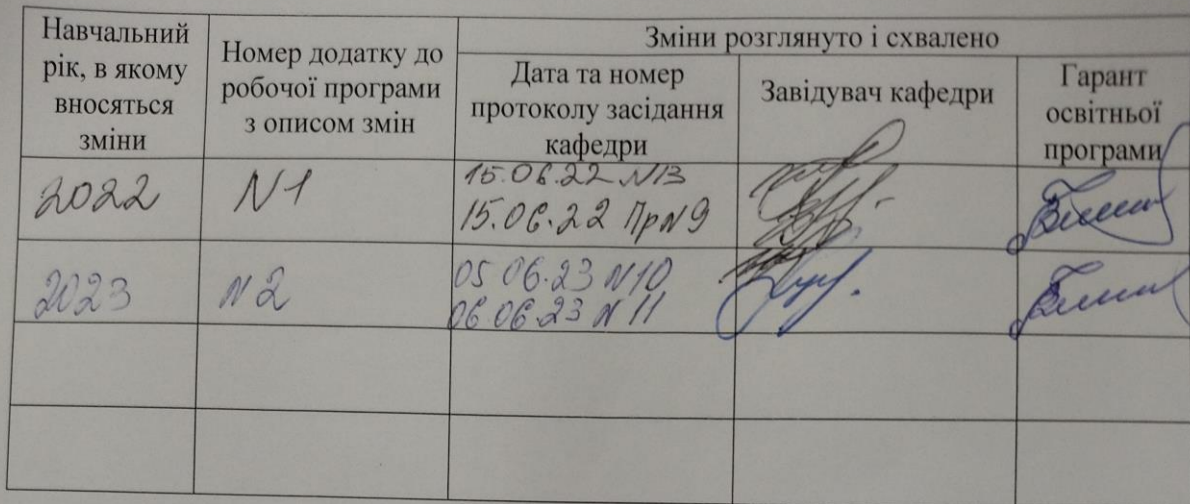 Навчальний
рік, в якому
вносяться
зміни
Номер додатку до
робочої програми
з описом змін
Зміни розглянуто і схвалено
Дата та номер
протоколу засідання
кафедри
Завідувач кафедри
Гарант
освітньої
програми
2022
N1
15.06.22 N13
15.06.22 Пр N9
2023
N2
05 06.23 N10
06.06.23 N 11